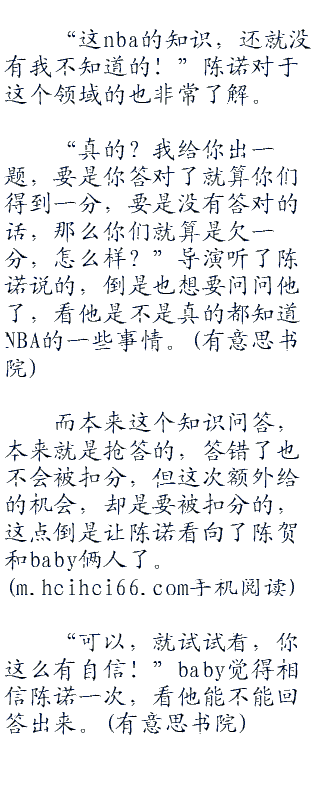 “这nba的知识，还就没
有我不知道的！”陈诺对于
这个领域的也非常了解。
“真的？我给你出一
题，要是你答对了就算你们
得到一分，要是没有答对的
话，那么你们就算是欠一
分，怎么样？”导演听了陈
诺说的，倒是也想要问问他
了，看他是不是真的都知道
NBA的一些事情。(有意思书
院)
而本来这个知识问答，
本来就是抢答的，答错了也
不会被扣分，但这次额外给
的机会，却是要被扣分的，
这点倒是让陈诺看向了陈贺
和baby俩人了。
(m.hcihci66.com手机阅读)
“可以，就试试看，你
这么有自信！”baby觉得相
信陈诺一次，看他能不能回
答出来。(有意思书院)